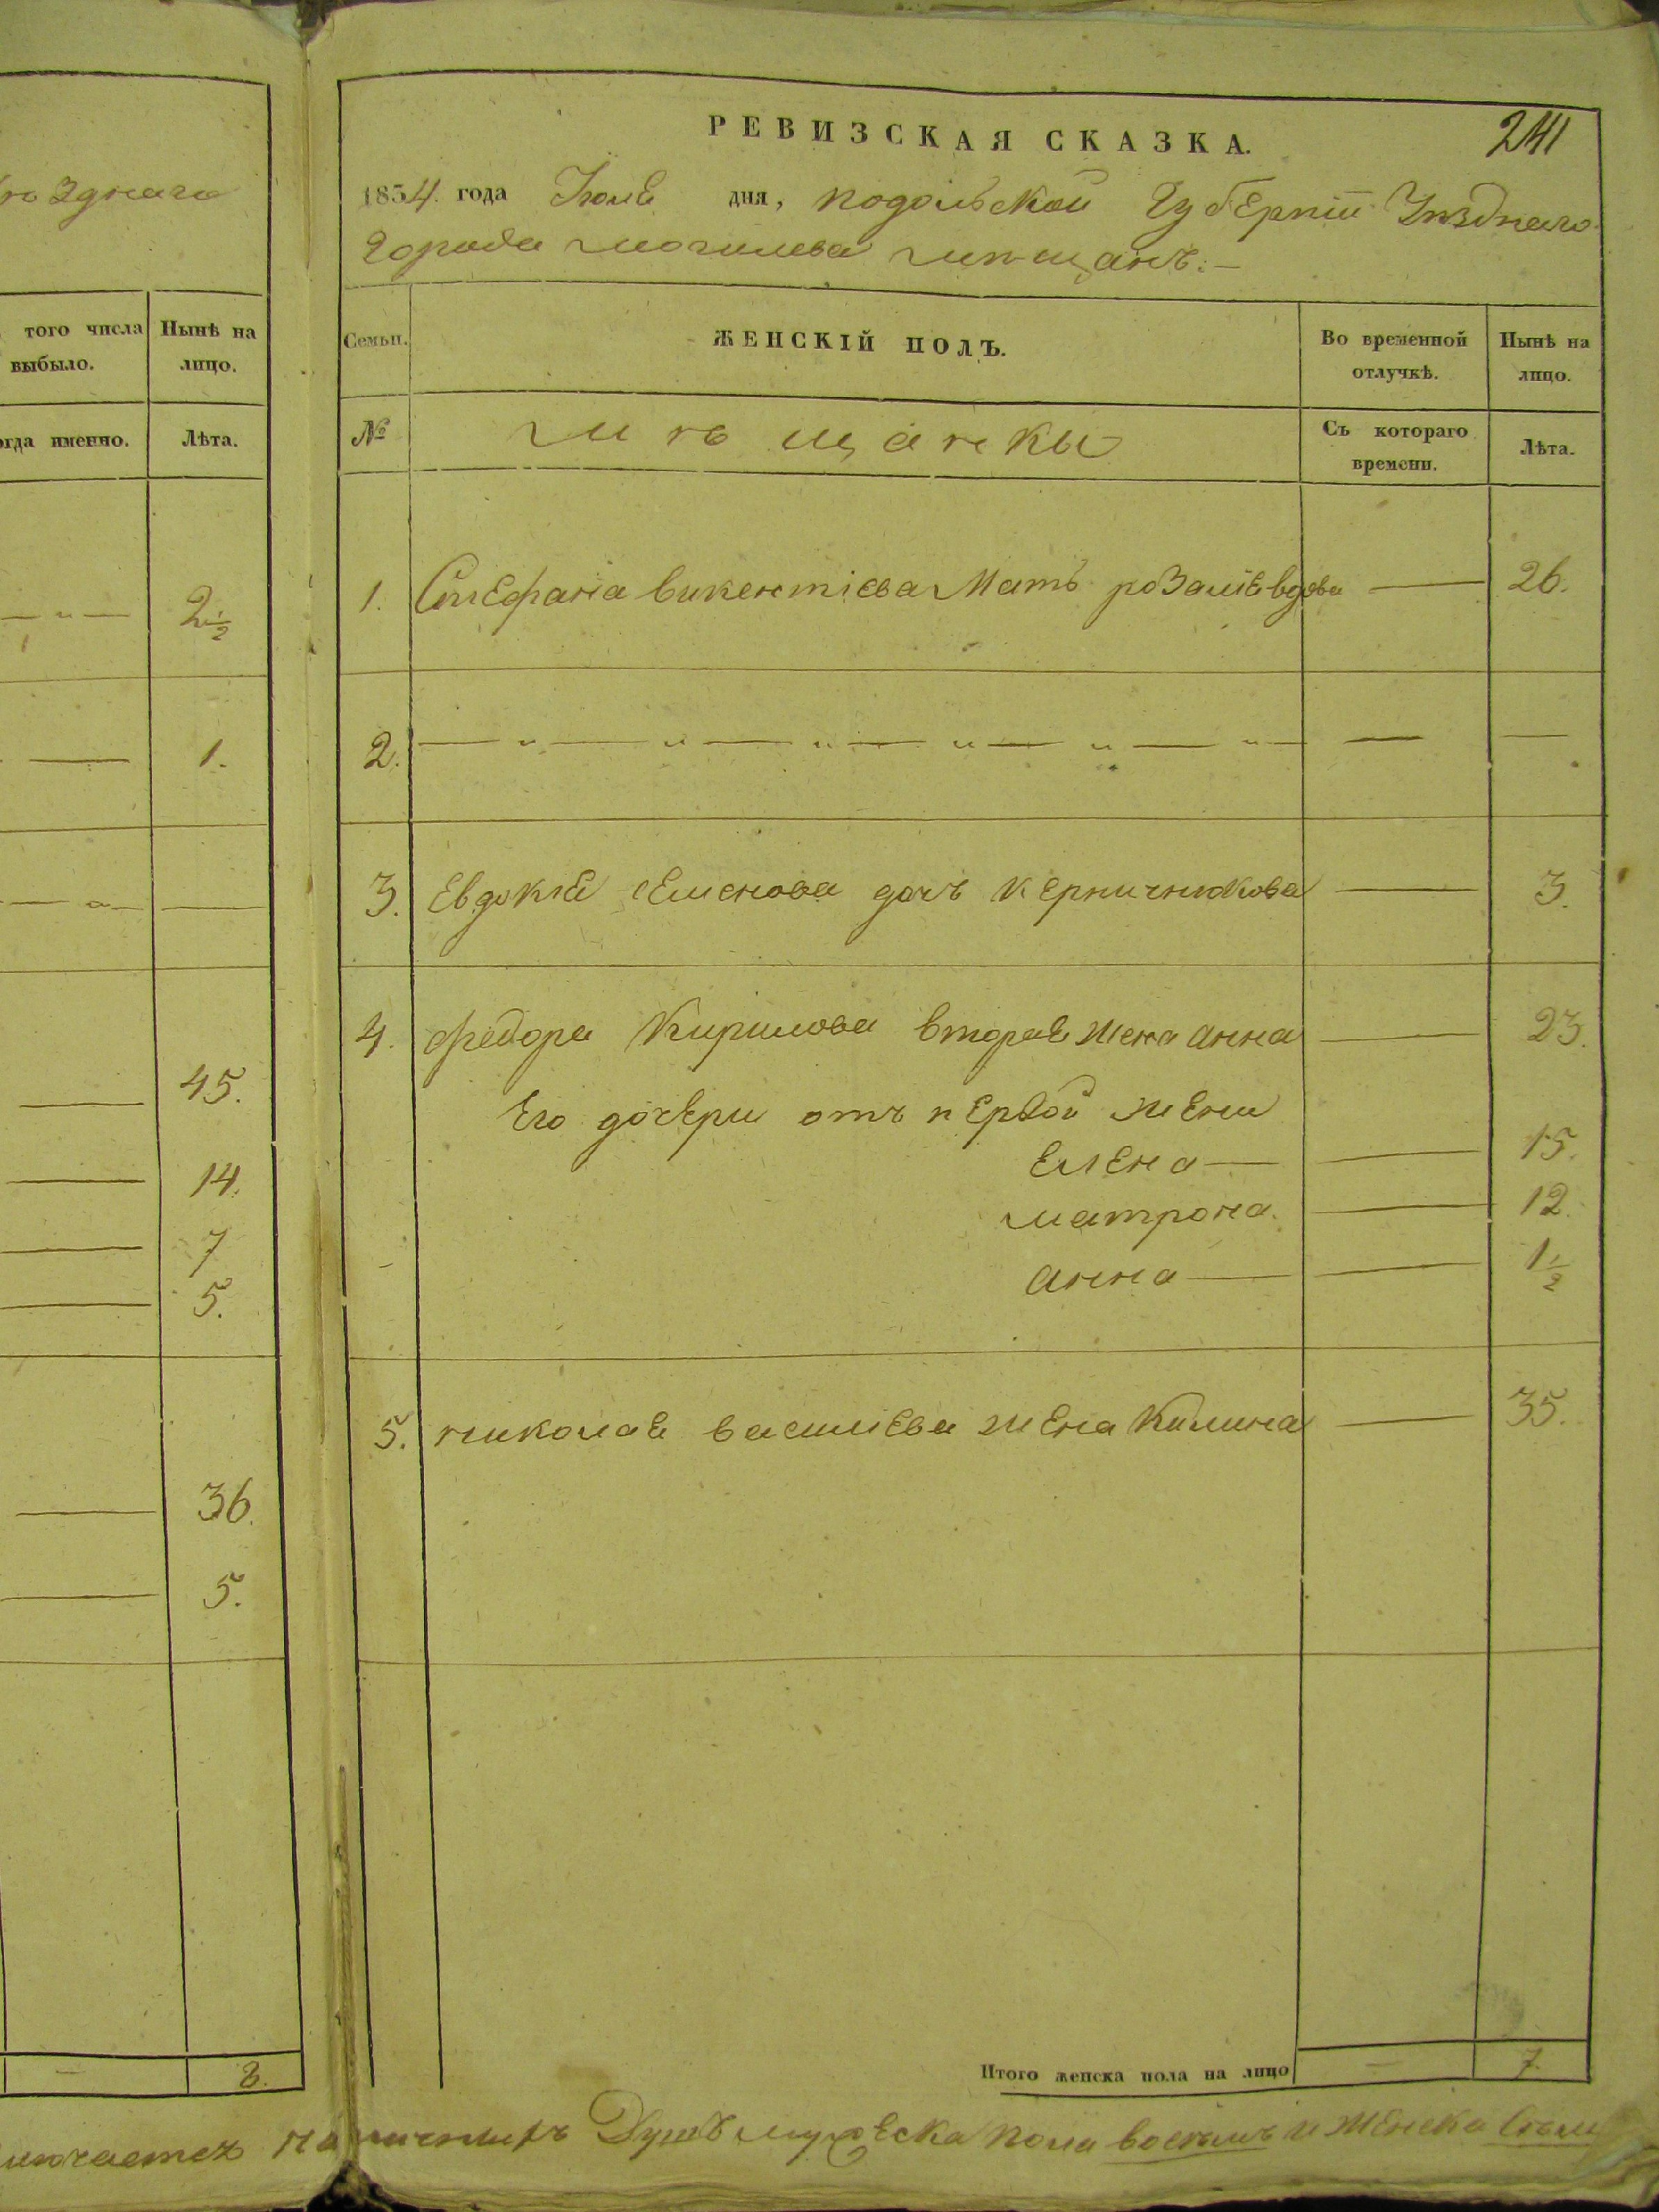 ѣзднаго
того числа
выбыло.
Нынѣ на
лицо.
огда именно.
Лѣта.
— „ — 2½
— 1.
— „ — —
— 45.
— 14.
— 7
— 5.
— 36.
— 5.
— 8.
241
РЕВИЗСКАЯ СКАЗКА.
1854. года Іюля дня, подольской Губерніи Уѣзднаго
Города могилева мѣщанъ:—
Семьи.
ЖЕНСКІЙ ПОЛЪ.
Во временной
отлучкѣ.
Нынѣ на
лицо.
№
мѣщанки
Съ котораго
времени.
Лѣта.
1. Стефана викентіева Мать розалія вдова — 26.
2. — „ — „ — „ — „ — „ — „ — — —
3. Евдокія семенова дочь керничнюкова — 3.
4. федора Кирилова вторая жена анна — 23.
Его дочери отъ первой жени
Елена — — 15.
матрона. — 12.
анна — — 1½
5. николая василіева жена Килина — 35.
Итого женска пола на лицо — 7.
лючается наличнихъ Душъ мужеска пола восемъ и женска семь